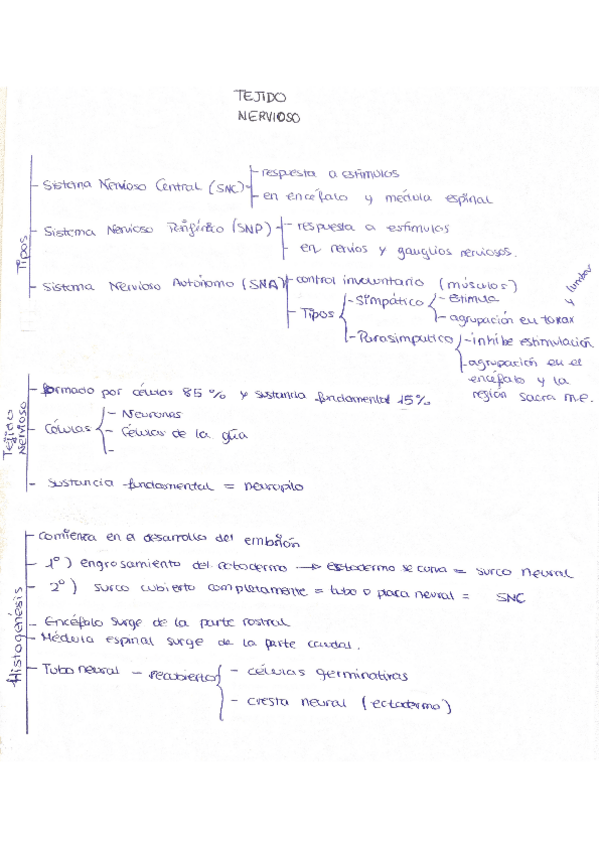 TEJIDO
NERVIOSO
Tipos
- Sistema Nervioso Central (SNC)
- respuesta a estímulos
- en encéfalo y médula espinal
- Sistema Nervioso Periférico (SNP)
- respuesta a estímulos
- en nervios y ganglios nerviosos.
- Sistema Nervioso Autónomo (SNA)
- control involuntario (músculos)
- Tipos
- Simpático
- estimula
- agrupación en torax y lumbar
- Parasimpatico
- inhibe estimulación
- agrupación en el
encéfalo y la
región sacra m.e.
Tejido
Nervioso
- formado por células 85% y sustancia fundamental 15%
- Células
- Neuronas
- Células de la glia
-
- sustancia fundamental = neuropilo
Histogénesis
- Comienza en el desarrollo del embrión
- 1º) engrosamiento del ectodermo → ectodermo se curva = surco neural
- 2º) surco cubierto completamente = tubo o placa neural = SNC
- Encéfalo surge de la parte rostral
- Médula espinal surge de la parte caudal.
- Tubo neural - recubierto
- células germinativas
- cresta neural (ectodermo)